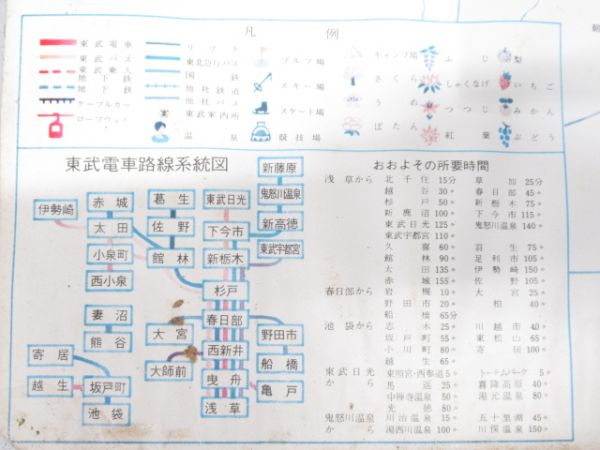 凡 例
東武電車
東武バス
東武乗入
地下鉄
地下鉄
ケーブルカー
ロープウェイ
リフト
東北急行バス
国鉄
他社鉄道
他社バス
東武案内所
温泉
ゴルフ場
スキー場
スケート場
競技場
キャンプ場
さくら
うめ
ぼたん
ふじ
しゃくなげ
つつじ
紅葉
梨
いちご
みかん
ぶどう
東武電車路線系統図
新藤原
鬼怒川温泉
新高徳
東武宇都宮
東武日光
下今市
新栃木
杉戸
春日部
西新井
曳舟
浅草
葛生
佐野
館林
伊勢崎
赤城
太田
小泉町
西小泉
妻沼
熊谷
寄居
越生
坂戸町
池袋
大宮
大師前
野田市
船橋
亀戸
おおよその所要時間
浅草から 北千住 15分 草加 25分
越谷 30〃 春日部 45〃
杉戸 50〃 新栃木 75〃
新鹿沼 100〃 下今市 115〃
東武日光 125〃 鬼怒川温泉 140〃
東武宇都宮 110〃
久喜 60〃 羽生 75〃
館林 90〃 足利市 105〃
太田 135〃 伊勢崎 150〃
赤城 155〃 佐野 105〃
春日部から 岩槻 10〃 大宮 25〃
野田市 20〃 柏 40〃
船橋 65分
池袋から 志木 25〃 川越市 40〃
坂戸町 55〃 東松山 65〃
小川町 80〃 寄居 100〃
越生 65〃
東武日光から 東照宮・西参道 5〃 トーテムパーク 5〃
馬返 25〃 霧降高原 40〃
中禅寺温泉 50〃 湯元温泉 80〃
光徳 80〃
鬼怒川温泉から 川治温泉 15〃 五十里湖 45〃
湯西川温泉 100〃 川俣温泉 150〃